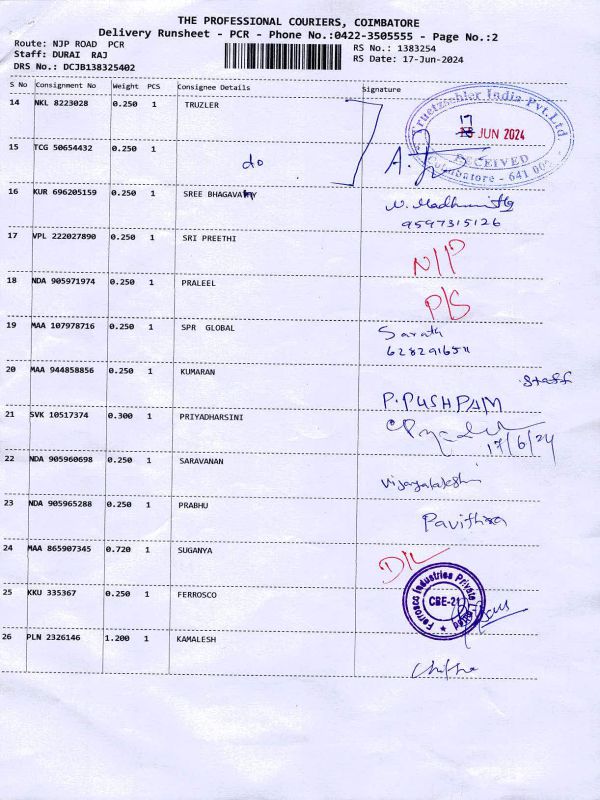 THE PROFESSIONAL COURIERS, COIMBATORE
Delivery Runsheet - PCR - Phone No.:0422-3505555 - Page No.:2
Route: NJP ROAD PCR
Staff: DURAI RAJ
DRS No.: DCJB138325402
RS No.: 1383254
RS Date: 17-Jun-2024
S No Consignment No Weight PCS Consignee Details Signature
14 NKL 8223028 0.250 1 TRUZLER
Truetzschler India Pvt.Ltd.
17
JUN 2024
RECEIVED
Coimbatore - 641
15 TCG 50654432 0.250 1
do
16 KUR 696205159 0.250 1 SREE BHAGAVATHY
9597315126
17 VPL 222027890 0.250 1 SRI PREETHI
N/P
18 NDA 905971974 0.250 1 PRALEEL
P/S
19 MAA 107978716 0.250 1 SPR GLOBAL
Sarath
20 MAA 944858856 0.250 1 KUMARAN
Staff
P.PUSHPAM
21 SVK 10517374 0.300 1 PRIYADHARSINI
17/6/24
22 NDA 905960698 0.250 1 SARAVANAN
Vijayalakshmi
23 NDA 905965288 0.250 1 PRABHU
Pavithra
24 MAA 865907345 0.720 1 SUGANYA
D/L
25 KKU 335367 0.250 1 FERROSCO
Ferrosco Industries Private
CBE-21
26 PLN 2326146 1.200 1 KAMALESH
Chithra